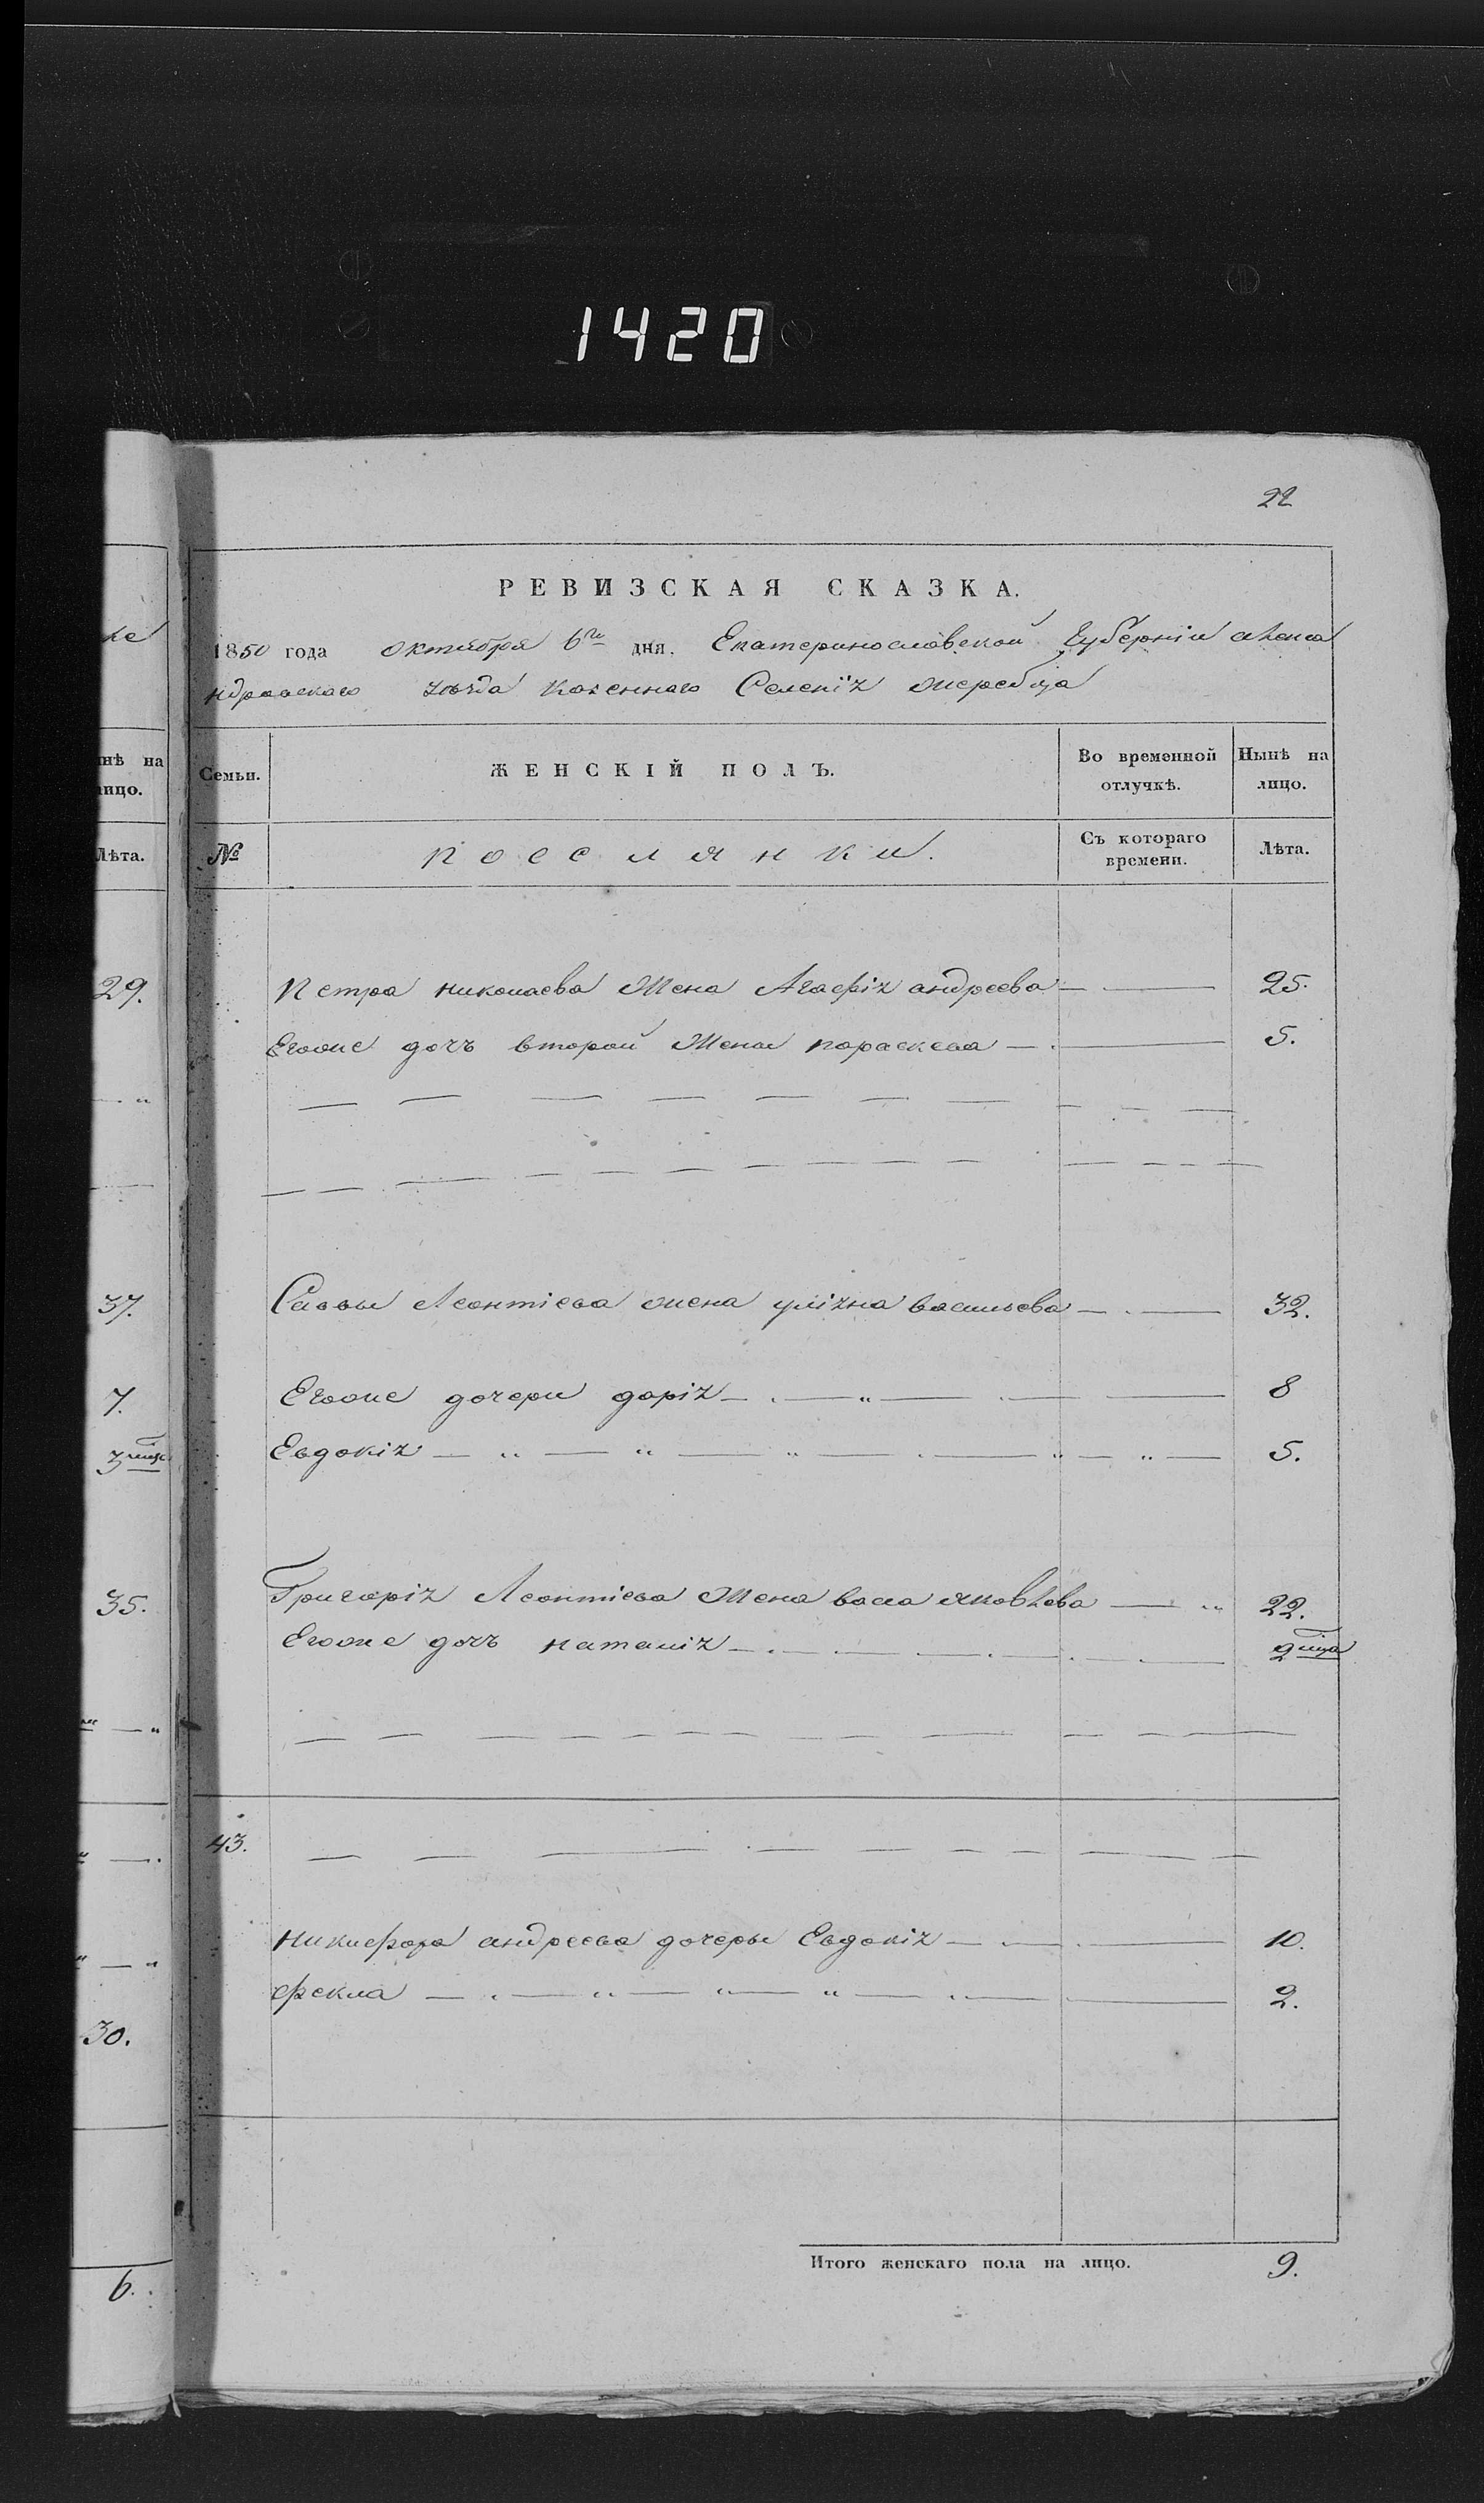 1420
22
РЕВИЗСКАЯ СКАЗКА.
1850 года октября 6го дня. Екатеринославской Губерніи алекса
ндровскаго уѣзда казеннаго Селенія жеребца
нѣ на
лицо.
Семьи.
ЖЕНСКІЙ ПОЛЪ.
Во временной
отлучкѣ.
Нынѣ на
лицо.
Лѣта.
№
поселянки.
Съ котораго
времени.
Лѣта.
29.
Петра николаева Жена Агафія андреева 25.
Егоже дочъ второй Жены параскева 5.
37.
Саввы Леонтіева жена уліяна васильева 32.
7.
Егоже дочери дарія 8
3
Евдокія 5.
35.
Григорія Леонтіева Жена васа яковлева 22.
Егоже дочъ наталія 2 мца
43.
никифора андреева дочеры Евдокія 10.
фекла 2.
30.
Итого женскаго пола на лицо. 9.
6.